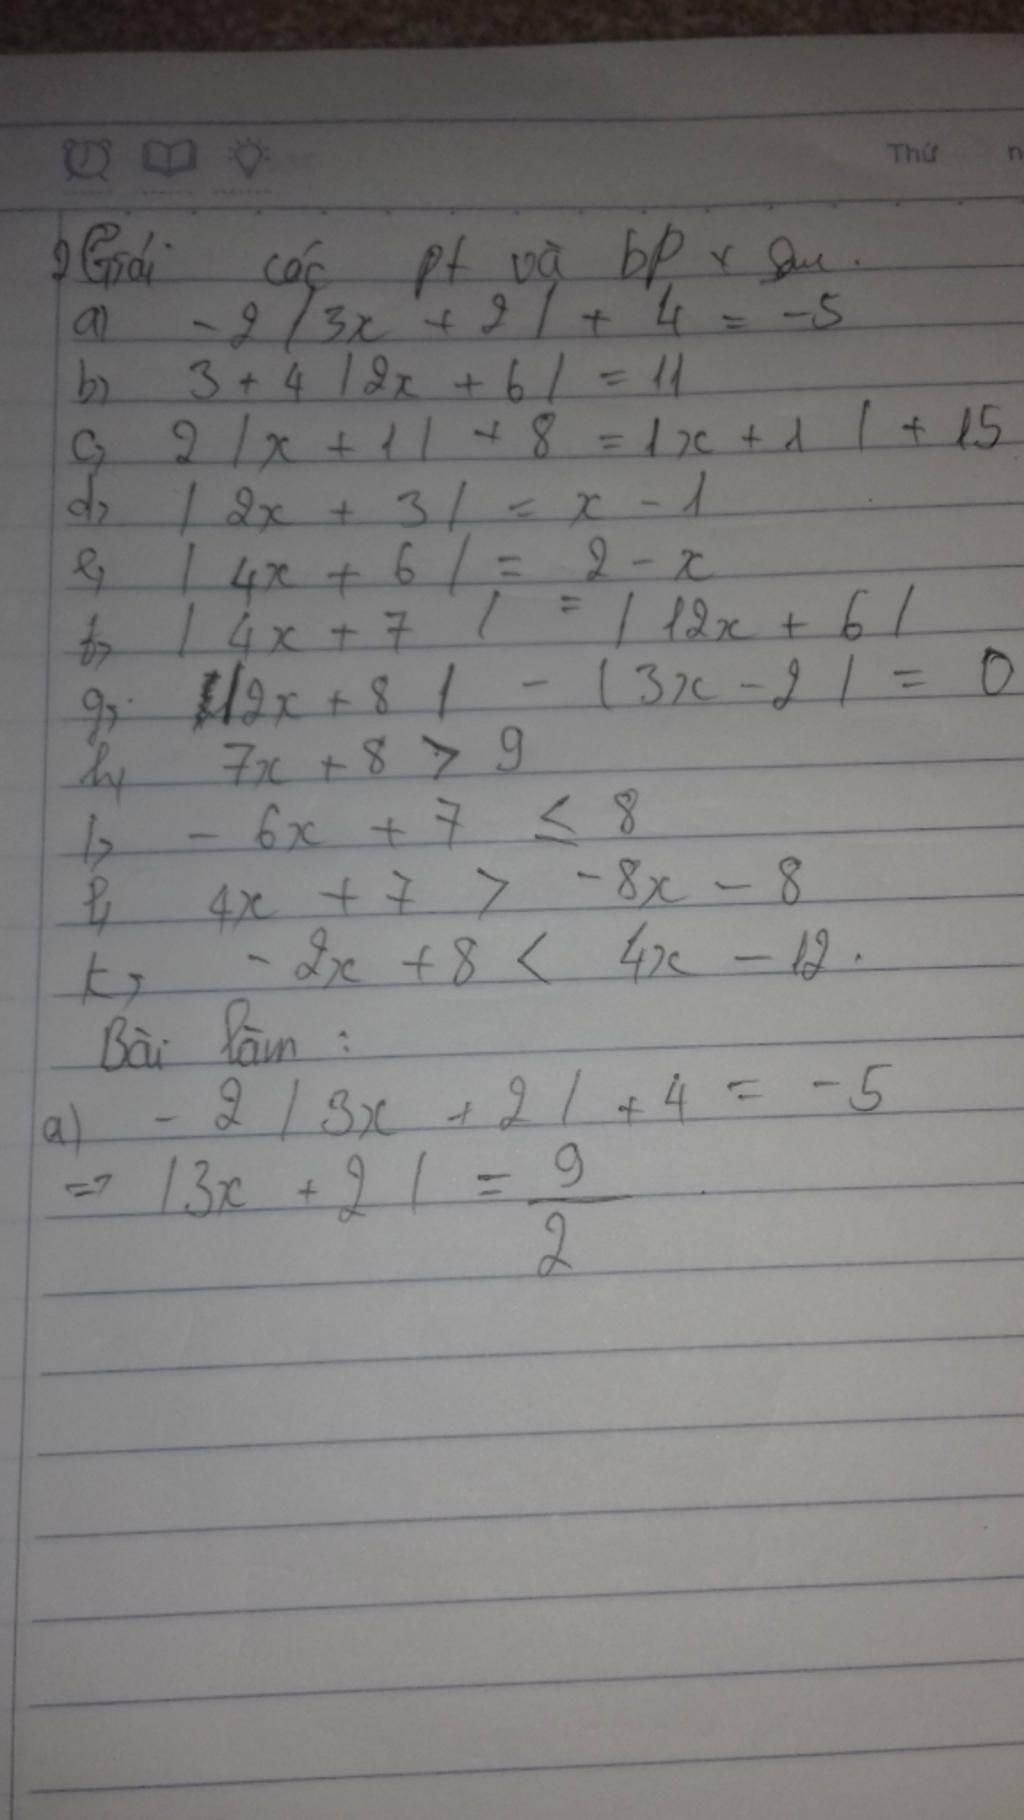 Thứ n
Giải các pt và bp + sau.
a) -2 |3x + 2| + 4 = -5
b, 3 + 4 |2x + 6| = 11
c, 2 |x + 1| + 8 = |x + 1| + 15
d, |2x + 3| = x - 1
e, |4x + 6| = 2 - x
f, |4x + 7| = |12x + 6|
g, |2x + 8| - |3x - 2| = 0
h, 7x + 8 > 9
i, -6x + 7 ≤ 8
l, 4x + 7 > -8x - 8
k, -2x + 8 < 4x - 12.
Bài làm :
a) -2 |3x + 2| + 4 = -5
=> |3x + 2| = 9/2